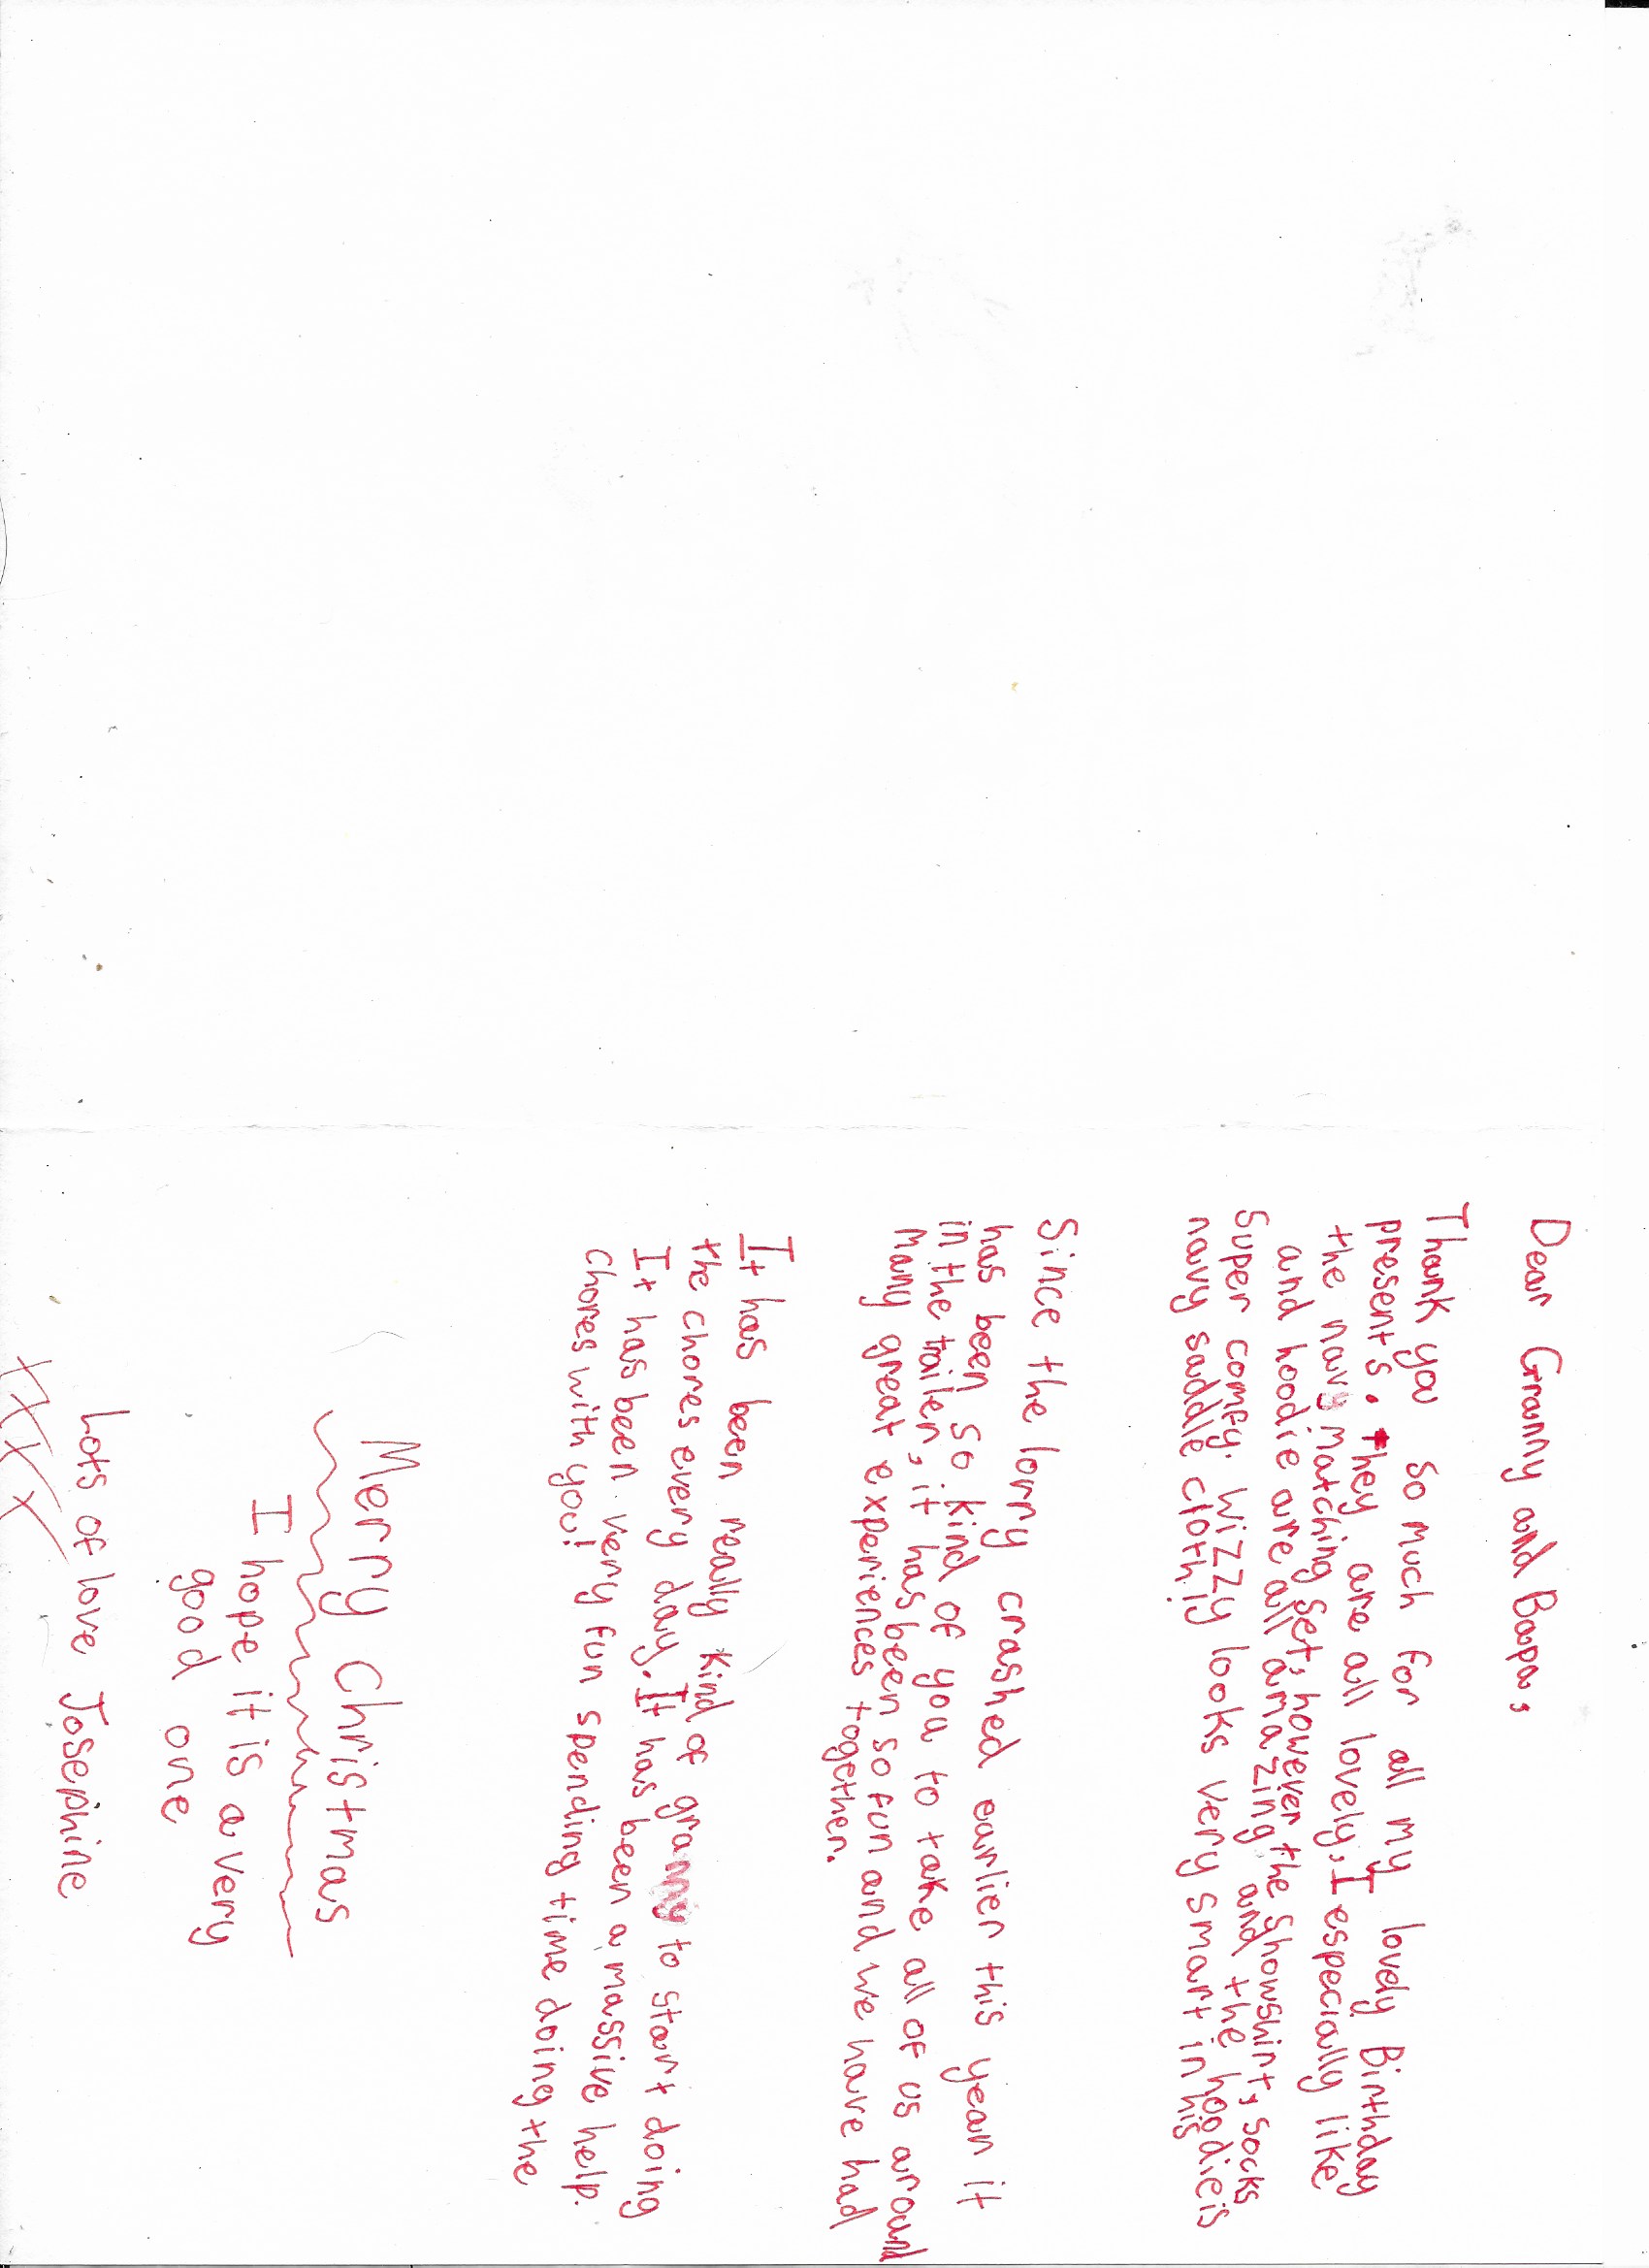 Dear Granny and Bapa,
Thank you so much for all my lovely Birthday
presents. They are all lovely, I especially like
the navy matching set, however the showshirt, socks
and hoodie are all amazing and the hoodie is
super comfy. Wizzy looks very smart in his
navy saddle cloth!
Since the lorry crashed earlier this year it
has been so kind of you to take all of us around
in the trailer, it has been so fun and we have had
many great experiences together.
It has been really kind of granny to start doing
the chores every day. It has been a massive help.
It has been very fun spending time doing the
chores with you!
Merry Christmas
I hope it is a very
good one
Lots of love Josephine
xxxx